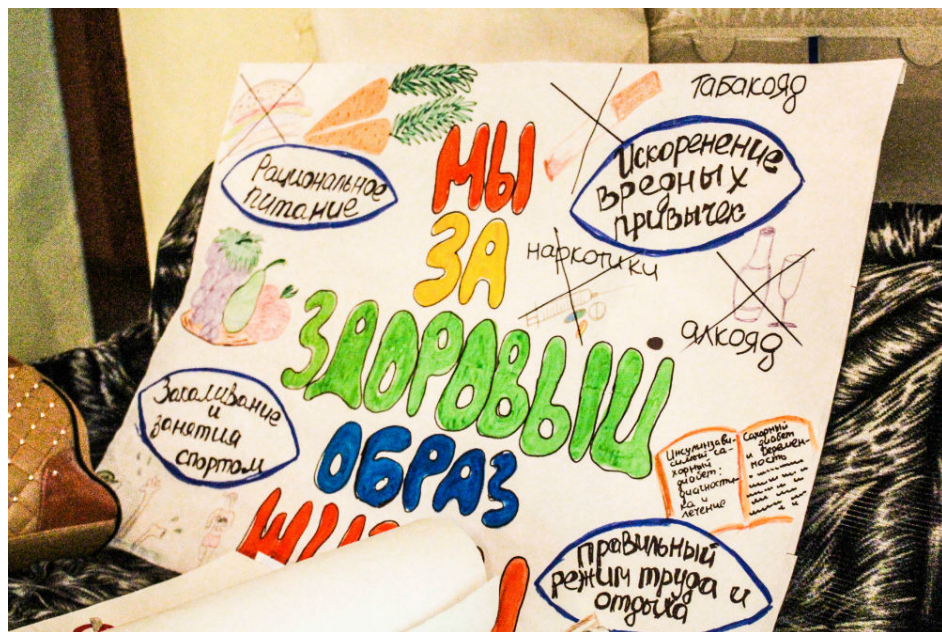 табакояд
Рациональное
питание
Искоренение
вредных
привычек
МЫ
ЗА
ЗДОРОВЫЙ
ОБРАЗ
наркотики
алкояд
Закаливание
и
занятия
спортом
Инсулинзави-
симый са-
харный
диабет:
диагности-
ка и
лечение
Сахарный
диабет
и беремен-
ность
Правильный
режим труда и
отдыха